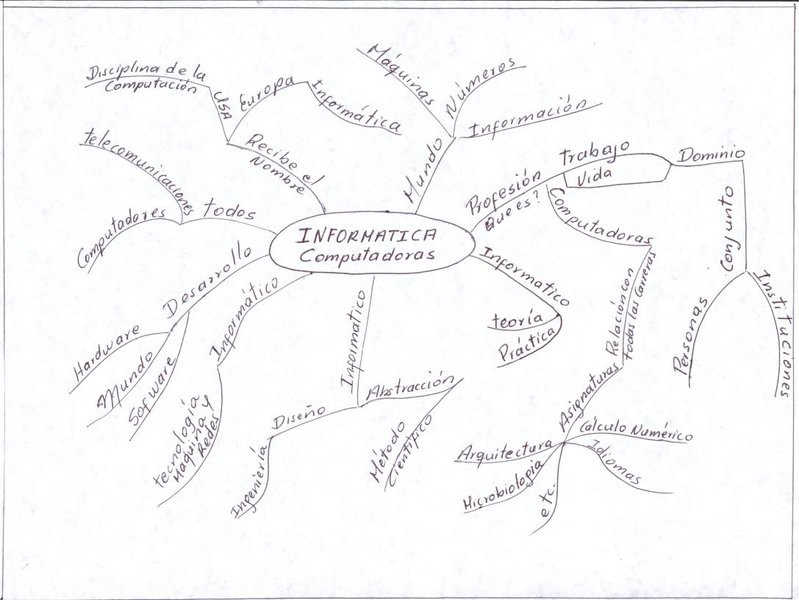 INFORMATICA
Computadoras
Recibe el
Nombre
USA
Disciplina de la
Computación
Europa
Informática
Mundo
Máquinas
Números
Información
Profesión
que es?
trabajo
Vida
Dominio
Conjunto
Personas
Instituciones
Computadoras
Relación con
todas las carreras
Asignaturas
Arquitectura
Microbiología
etc.
Idiomas
Cálculo Numérico
Informatico
teoría
Práctica
Informatico
Abstracción
Método
Cientifico
Diseño
Ingeniería
Informático
tecnología
Maquina y
Redes
Desarrollo
Hardware
Mundo
Sofware
todos
telecomunicaciones
Computadores